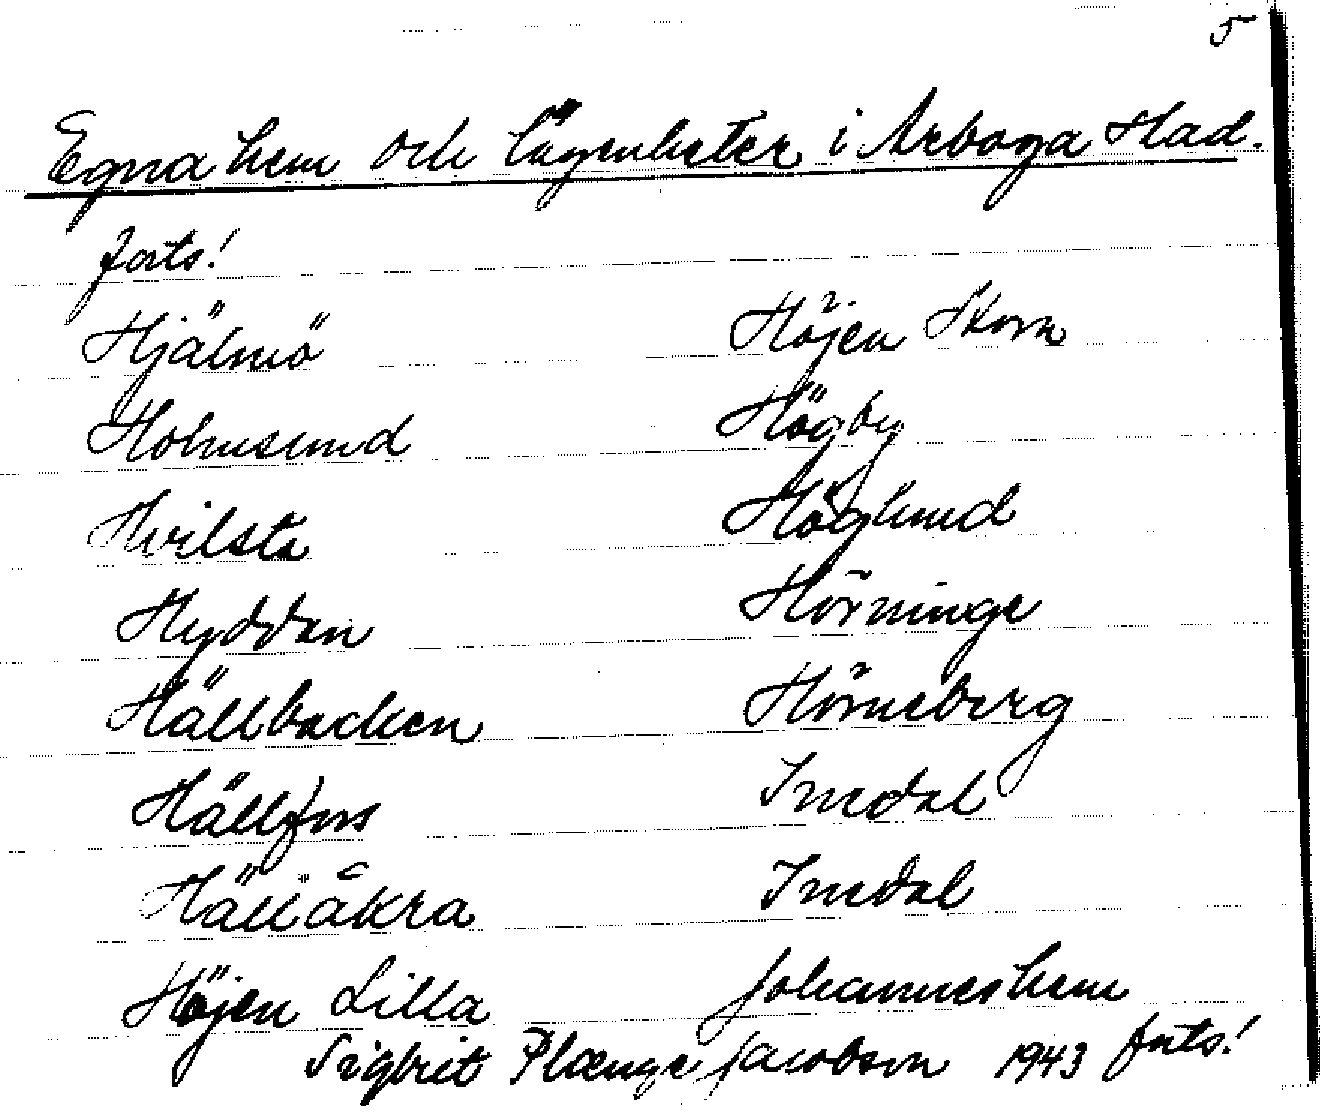 5
Egna hem och lägenheter i Arboga Stad.
forts!
Hjälmö
Holmsund
Hvilsta
Hyddan
Hällbacken
Hällfors
Hälläkra
Höjen Lilla
Höjen Stora
Högby
Höglund
Hörninge
Hörneberg
Inedal
Inedal
Johanneshem
Sigbrit Plænge Jacobson 1943 forts!